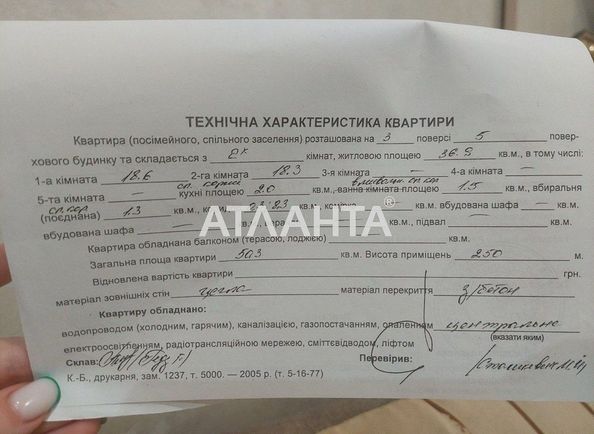 ТЕХНІЧНА ХАРАКТЕРИСТИКА КВАРТИРИ
Квартира (посімейного, спільного заселення) розташована на 3 поверсі 5 повер-
хового будинку та складається з 2х кімнат, житловою площею 36.9 кв.м., в тому числі:
1-а кімната 18.6 кв.м., 2-га кімната 18.3 кв.м., 3-я кімната — кв.м., 4-а кімната —
5-та кімната — кв.м., кухні площею 2.0 кв.м., ванна кімната площею 1.5 кв.м., вбиральня
(поєднана) 1.3 кв.м., кв.м., вбудована шафа — кв.м.,
вбудована шафа — кв.м., підвал — кв.м.
АТЛАНТА
Квартира обладнана балконом (терасою, лоджією) кв.м.
Загальна площа квартири 50.3 кв.м. Висота приміщень 250 м.
Відновлена вартість квартири грн.
матеріал зовнішніх стін цегла матеріал перекриття з/бетон
Квартиру обладнано:
водопроводом (холодним, гарячим), каналізацією, газопостачанням, опаленням центральне
(вказати яким)
електроосвітленням, радіотрансляційною мережею, сміттєвідводом, ліфтом
Склав: Перевірив:
К.-Б., друкарня, зам. 1237, т. 5000. — 2005 р. (т. 5-16-77)